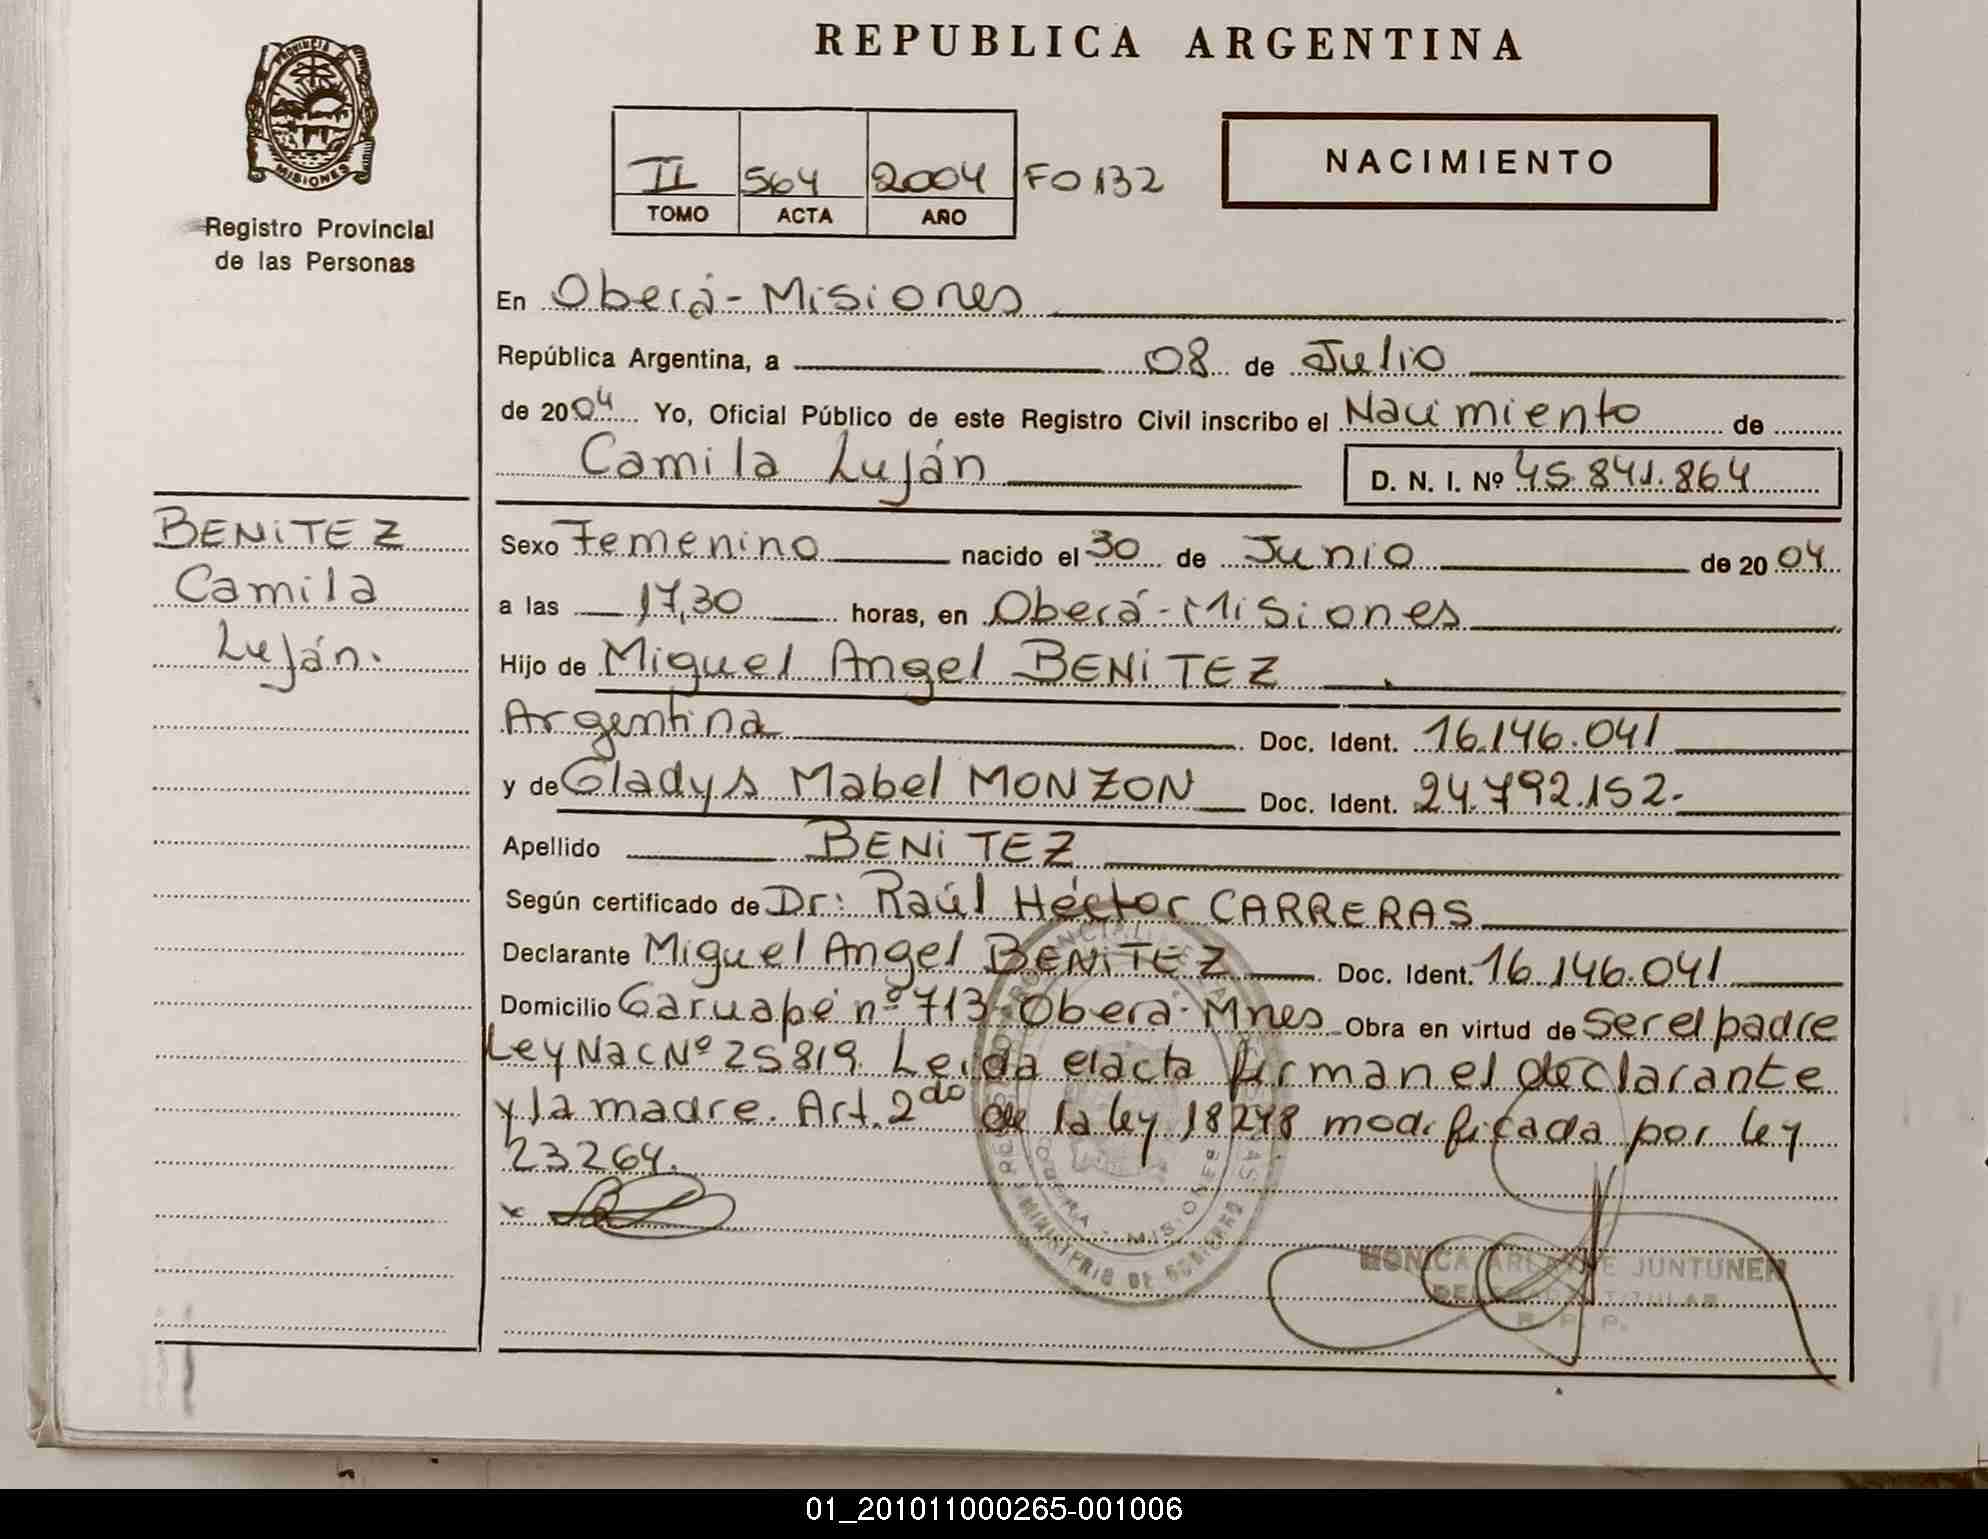 REPUBLICA ARGENTINA
PROVINCIA DE
MISIONES
Registro Provincial
de las Personas
II 564 2004 FO 132
TOMO ACTA AÑO
NACIMIENTO
En Oberá - Misiones
República Argentina, a 08 de Julio
de 2004 Yo, Oficial Público de este Registro Civil inscribo el Nacimiento de
Camila Luján D. N. I. Nº 45.841.864
BENITEZ
Camila
Luján.
Sexo Femenino nacido el 30 de Junio de 2004
a las 17,30 horas, en Oberá - Misiones
Hijo de Miguel Angel BENITEZ
Argentina Doc. Ident. 16.146.041
y de Gladys Mabel MONZON Doc. Ident. 24.792.152.-
Apellido BENITEZ
Según certificado de Dr: Raúl Héctor CARRERAS
Declarante Miguel Angel BENITEZ Doc. Ident. 16.146.041
Domicilio Garuapé nº 713- Oberá- Mnes Obra en virtud de ser el padre
Ley Nac Nº 25819. Leida el acta firman el declarante
y la madre. Art. 2do de la ley 18248 modificada por ley
23264.
MINISTERIO DE GOBIERNO
MISIONES
MONICA JUNTUNEN
TITULAR
R. P. P.
01_201011000265-001006